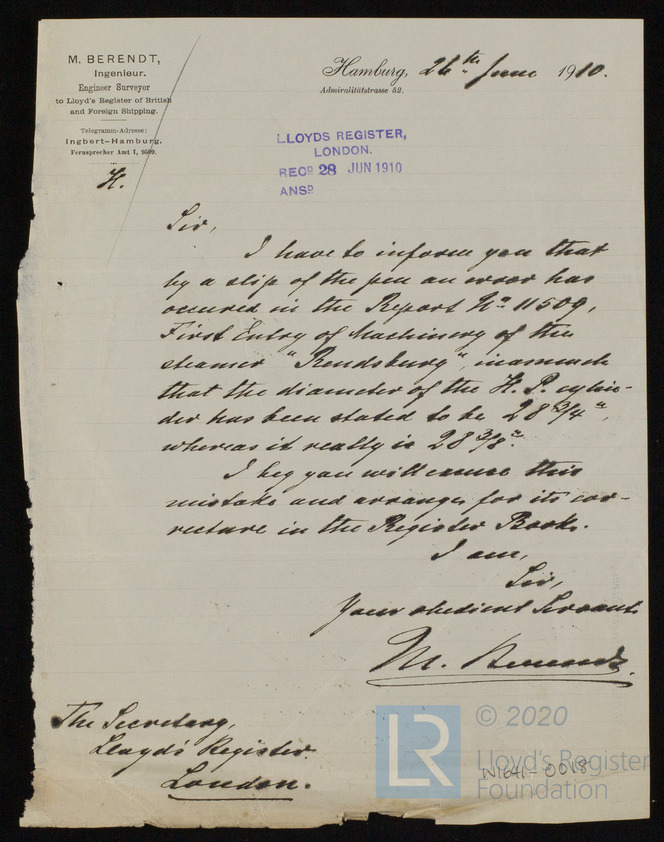 M. BERENDT,
Ingenieur.
Engineer Surveyor
to Lloyd's Register of British
and Foreign Shipping.
Telegramm-Adresse:
Ingbert-Hamburg.
Fernsprecher Amt I, 9509.
H.
Hamburg, 26th June 1910.
Admiralitätstrasse 52.
LLOYDS REGISTER,
LONDON.
RECD 28 JUN 1910
ANSD
Sir,
I have to inform you that
by a slip of the pen an error has
occured in the Report No 11509,
First Entry of Machinery of the
steamer "Rendsburg", inasmuch
that the diameter of the H. P. cylin-
der has been stated to be 28 3/4",
whereas it really is 28 3/8".
I beg you will excuse this
mistake and arrange for its cor-
recture in the Register Book.
I am,
Sir,
Your obedient Servant
M. Berendt
The Secretary,
Lloyd's Register.
London.
W1641-0018
LR
© 2020
Lloyd's Register
Foundation